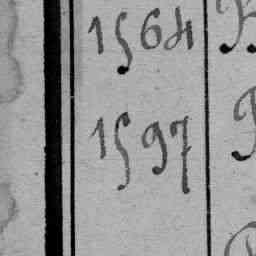 1564
1597